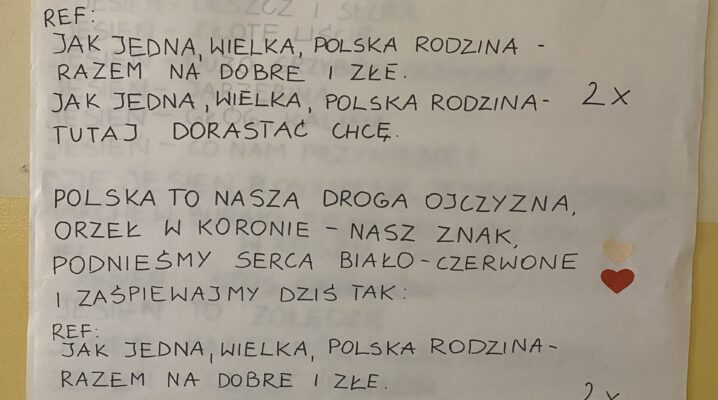 REF:
JAK JEDNA, WIELKA, POLSKA RODZINA -
RAZEM NA DOBRE I ZŁE.
JAK JEDNA, WIELKA, POLSKA RODZINA - 2x
TUTAJ DORASTAĆ CHCĘ.
POLSKA TO NASZA DROGA OJCZYZNA,
ORZEŁ W KORONIE - NASZ ZNAK,
PODNIEŚMY SERCA BIAŁO-CZERWONE
I ZAŚPIEWAJMY DZIŚ TAK:
REF:
JAK JEDNA, WIELKA, POLSKA RODZINA -
RAZEM NA DOBRE I ZŁE.
2x